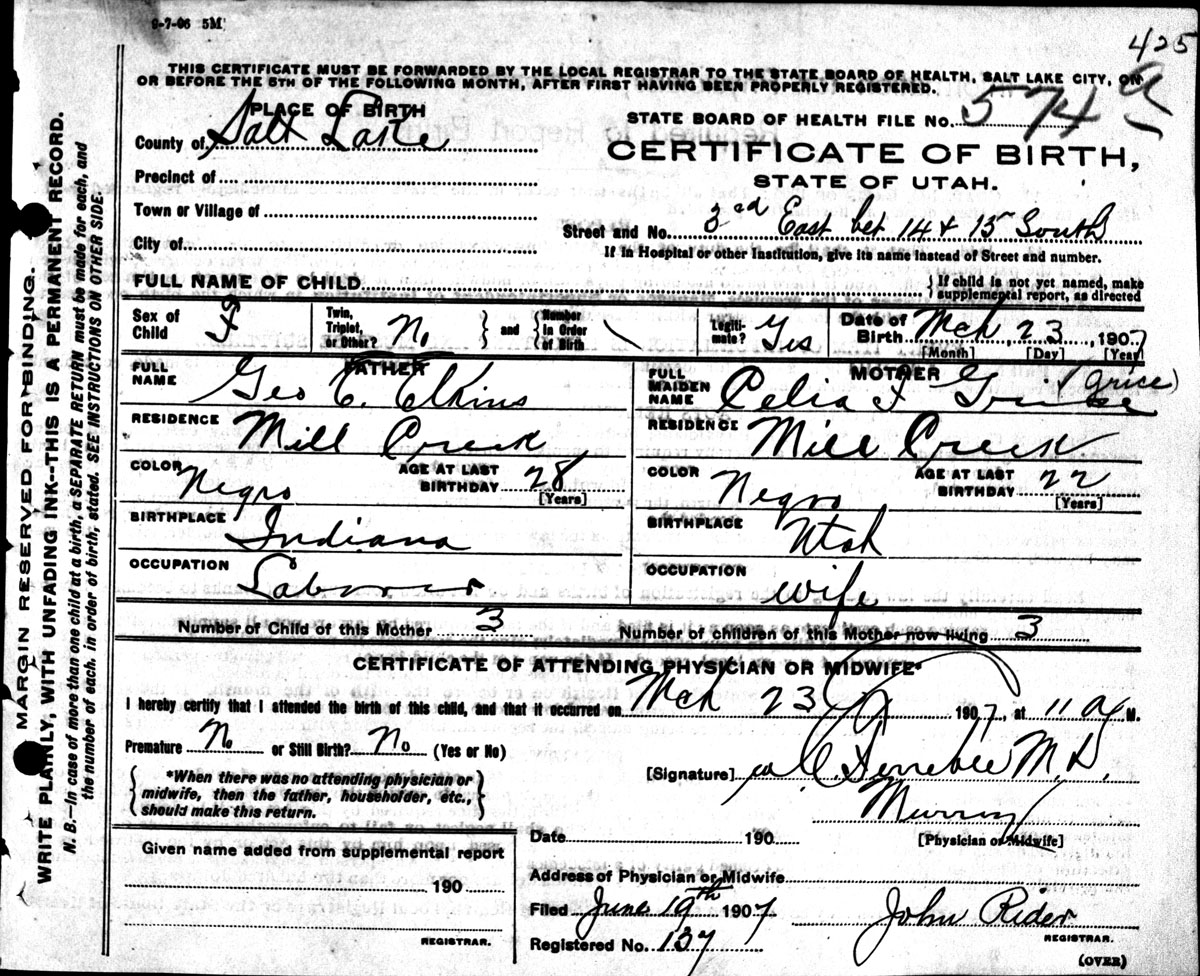 9-7-06 5M
425
THIS CERTIFICATE MUST BE FORWARDED BY THE LOCAL REGISTRAR TO THE STATE BOARD OF HEALTH, SALT LAKE CITY, ON
OR BEFORE THE 5TH OF THE FOLLOWING MONTH, AFTER FIRST HAVING BEEN PROPERLY REGISTERED.
PLACE OF BIRTH
County of Salt Lake
Precinct of
Town or Village of
City of
STATE BOARD OF HEALTH FILE NO. 574 a
CERTIFICATE OF BIRTH,
STATE OF UTAH.
Street and No. 3rd East bet 14 & 15 South
If in Hospital or other Institution, give its name instead of Street and number.
FULL NAME OF CHILD
If child is not yet named, make
supplemental report, as directed
Sex of Child F
Twin, Triplet, or Other? No and Number in Order of Birth
Legitimate? Yes
Date of Birth Mch 23, 1907
[Month] [Day] [Year]
FATHER
FULL NAME Geo E. Elkins
RESIDENCE Mill Creek
COLOR Negro AGE AT LAST BIRTHDAY 28 [Years]
BIRTHPLACE Indiana
OCCUPATION Laborer
MOTHER
FULL MAIDEN NAME Celia F (Grice)
RESIDENCE Mill Creek
COLOR Negro AGE AT LAST BIRTHDAY 22 [Years]
BIRTHPLACE Utah
OCCUPATION wife
Number of Child of this Mother 3 Number of children of this Mother now living 3
CERTIFICATE OF ATTENDING PHYSICIAN OR MIDWIFE*
I hereby certify that I attended the birth of this child, and that it occurred on Mch 23 1907, at 11 a M.
Premature No or Still Birth? No (Yes or No)
*When there was no attending physician or
midwife, then the father, householder, etc.,
should make this return.
[Signature] C Ferrebee M.D.
Murray
[Physician or Midwife]
Date 190
Address of Physician or Midwife
Given name added from supplemental report
190
REGISTRAR.
Filed June 19th 1907 John Rider
REGISTRAR.
Registered No. 137
(OVER)
MARGIN RESERVED FOR BINDING.
WRITE PLAINLY, WITH UNFADING INK--THIS IS A PERMANENT RECORD.
N. B.—In case of more than one child at a birth, a SEPARATE RETURN must be made for each, and
the number of each, in order of birth, stated. SEE INSTRUCTIONS ON OTHER SIDE.